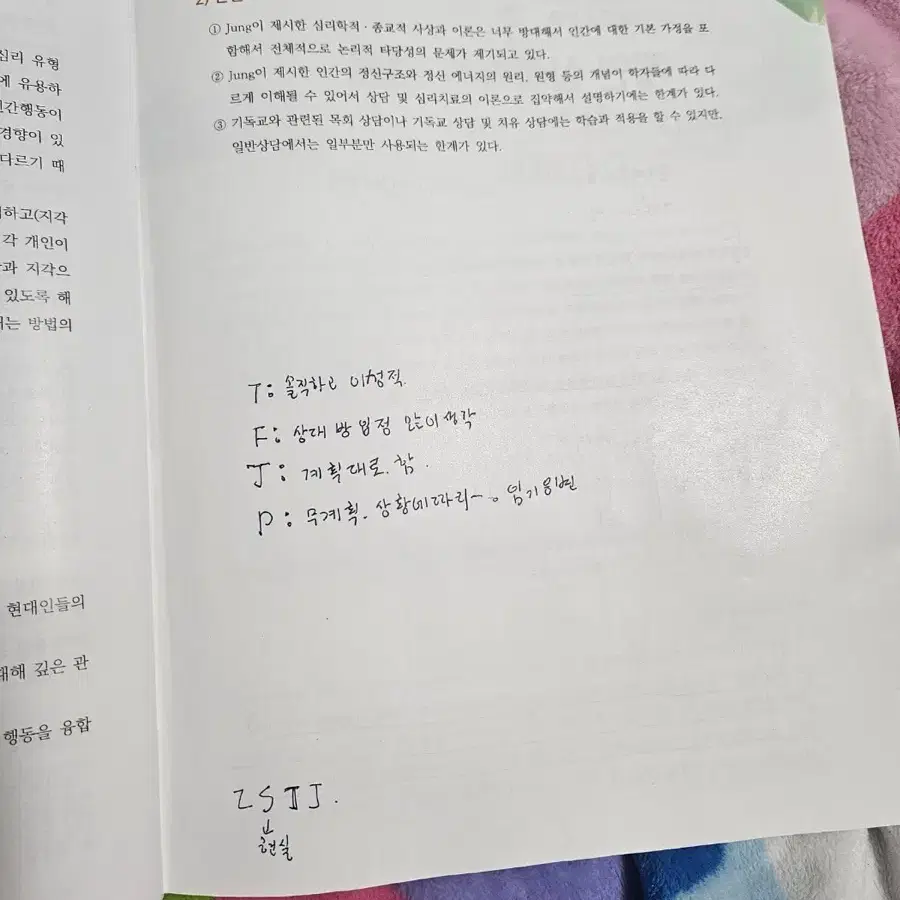 심리 유형
에 유용하
인간행동이
경향이 있
다르기 때
하고(지각
각 개인이
과 지각으
있도록 해
내는 방법의
현대인들의
대해 깊은 관
행동을 융합
2)
① Jung이 제시한 심리학적·종교적 사상과 이론은 너무 방대해서 인간에 대한 기본 가정을 포
함해서 전체적으로 논리적 타당성의 문제가 제기되고 있다.
② Jung이 제시한 인간의 정신구조와 정신 에너지의 원리, 원형 등의 개념이 학자들에 따라 다
르게 이해될 수 있어서 상담 및 심리치료의 이론으로 집약해서 설명하기에는 한계가 있다.
③ 기독교와 관련된 목회 상담이나 기독교 상담 및 치유 상담에는 학습과 적용을 할 수 있지만,
일반상담에서는 일부분만 사용되는 한계가 있다.
T: 솔직하고 이성적.
F: 상대방 입정 많이 생각
J: 계획대로 함.
P: 무계획. 상황에따라~. 임기응변
ISTJ.
현실